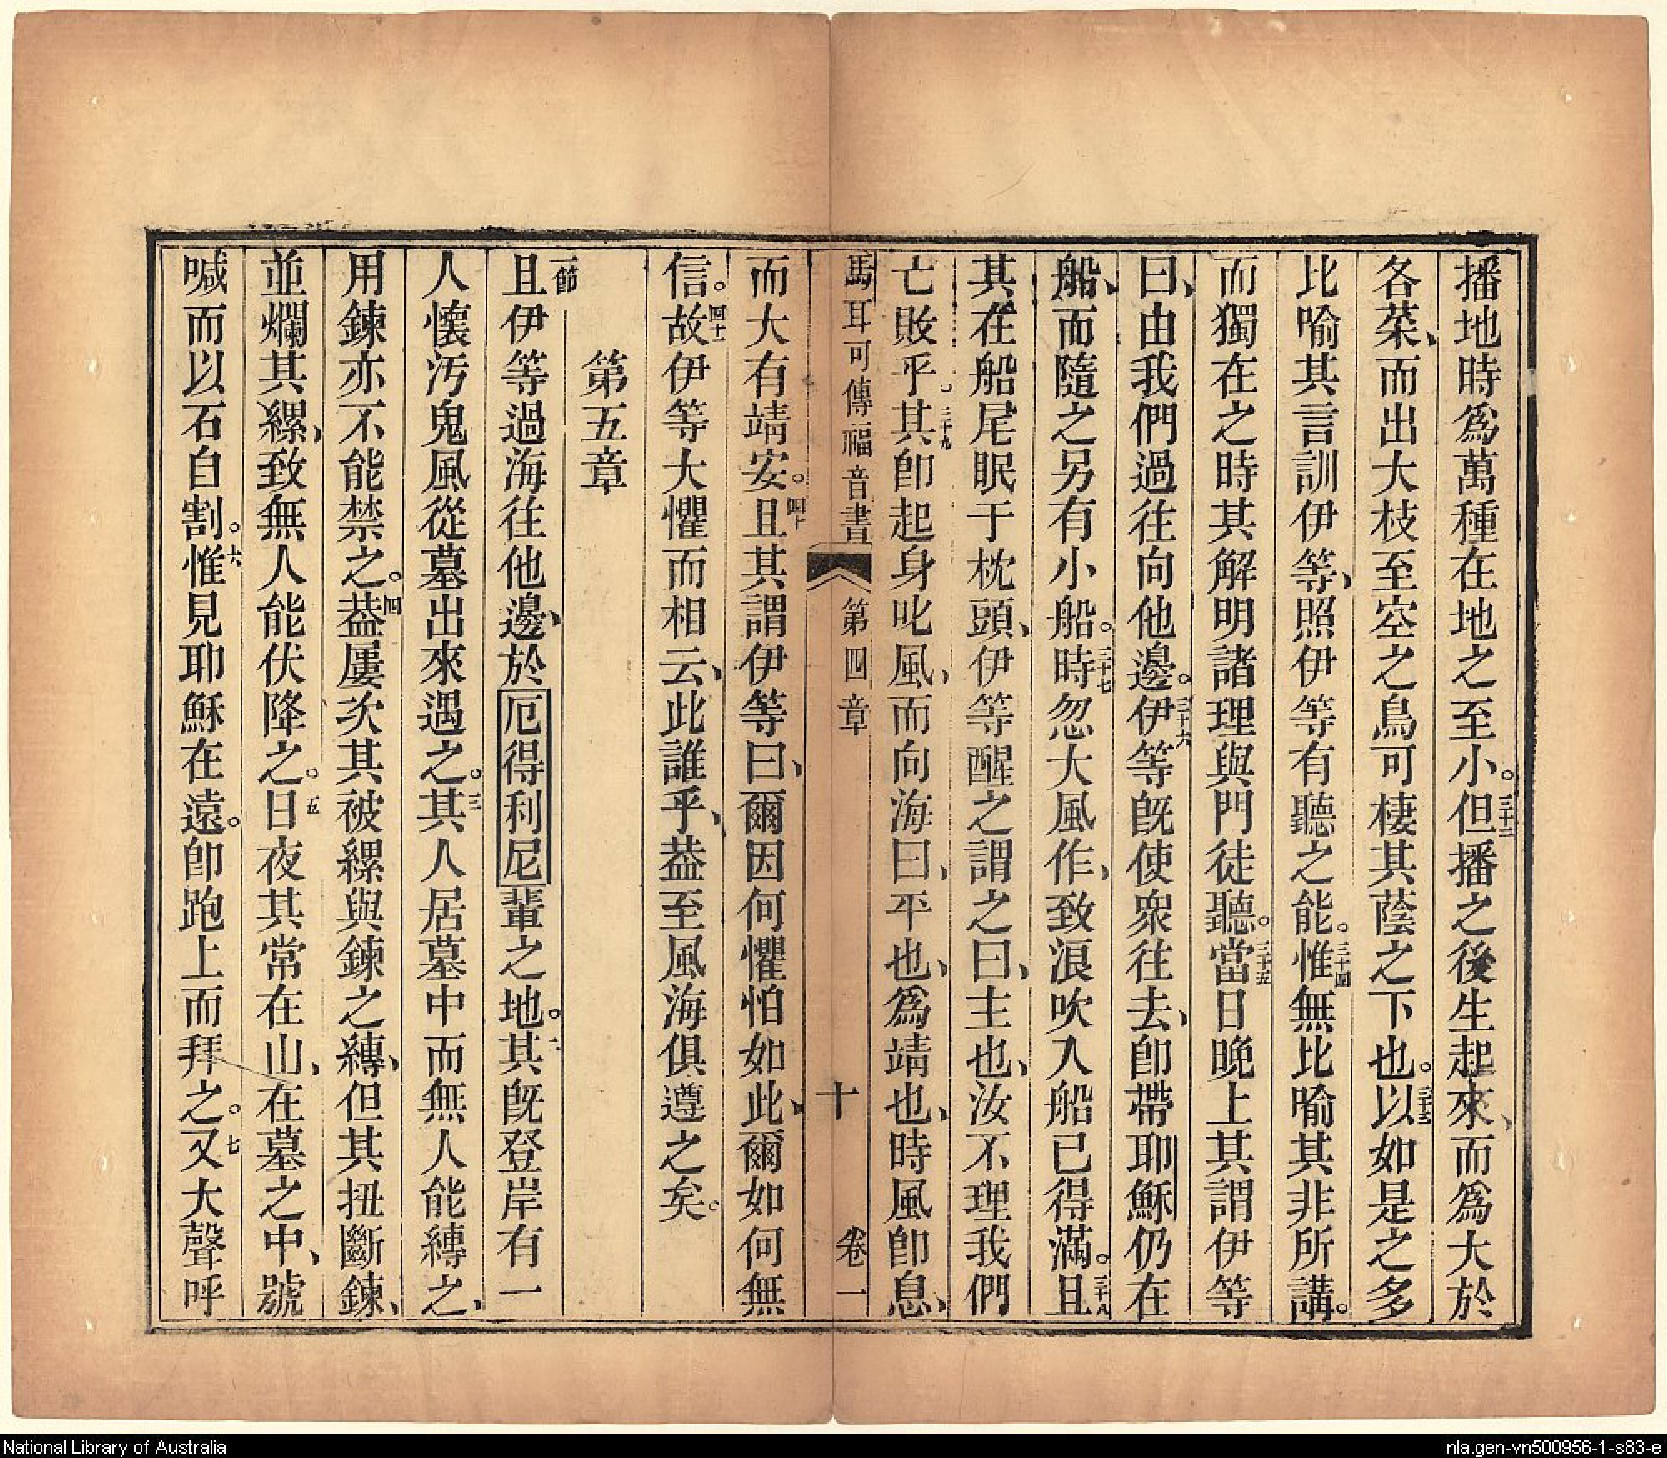 播地時爲萬種在地之至小。三十二但播之後生起來、而爲大於
各菜、而出大枝至空之鳥可棲其蔭之下也。三十三以如是之多
比喻其言訓伊等、照伊等有聽之能。三十四惟無比喻其非所講。
而獨在之時其解明諸理與門徒聽。三十五當日晚上其謂伊等
曰、由我們過往向他邊。三十六伊等旣使衆往去、卽帶耶穌仍在
船、而隨之另有小船。三十七時忽大風作、致浪吹入船已得滿。三十八且
其在船尾眠于枕頭、伊等醒之謂之曰、主也、汝不理我們
亡敗乎。三十九其卽起身叱風、而向海曰、平也、爲靖也、時風卽息、
馬耳可傳福音書 第四章 十 卷一
而大有靖安。四十且其謂伊等曰、爾因何懼怕如此、爾如何無
信。四十一故伊等大懼而相云、此誰乎、葢至風海俱遵之矣。
第五章
一節且伊等過海往他邊、於厄得利尼輩之地。二其旣登岸有一
人懷汚鬼風從墓出來遇之。三其人居墓中而無人能縛之、
用鍊亦不能禁之。四葢屢次其被縲與鍊之縛、但其扭斷鍊、
並爛其縲、致無人能伏降之。五日夜其常在山、在墓之中、號
喊而以石自割。六惟見耶穌在遠。卽跑上而拜之。七又大聲呼
National Library of Australia
nla.gen-vn500956-1-s83-e